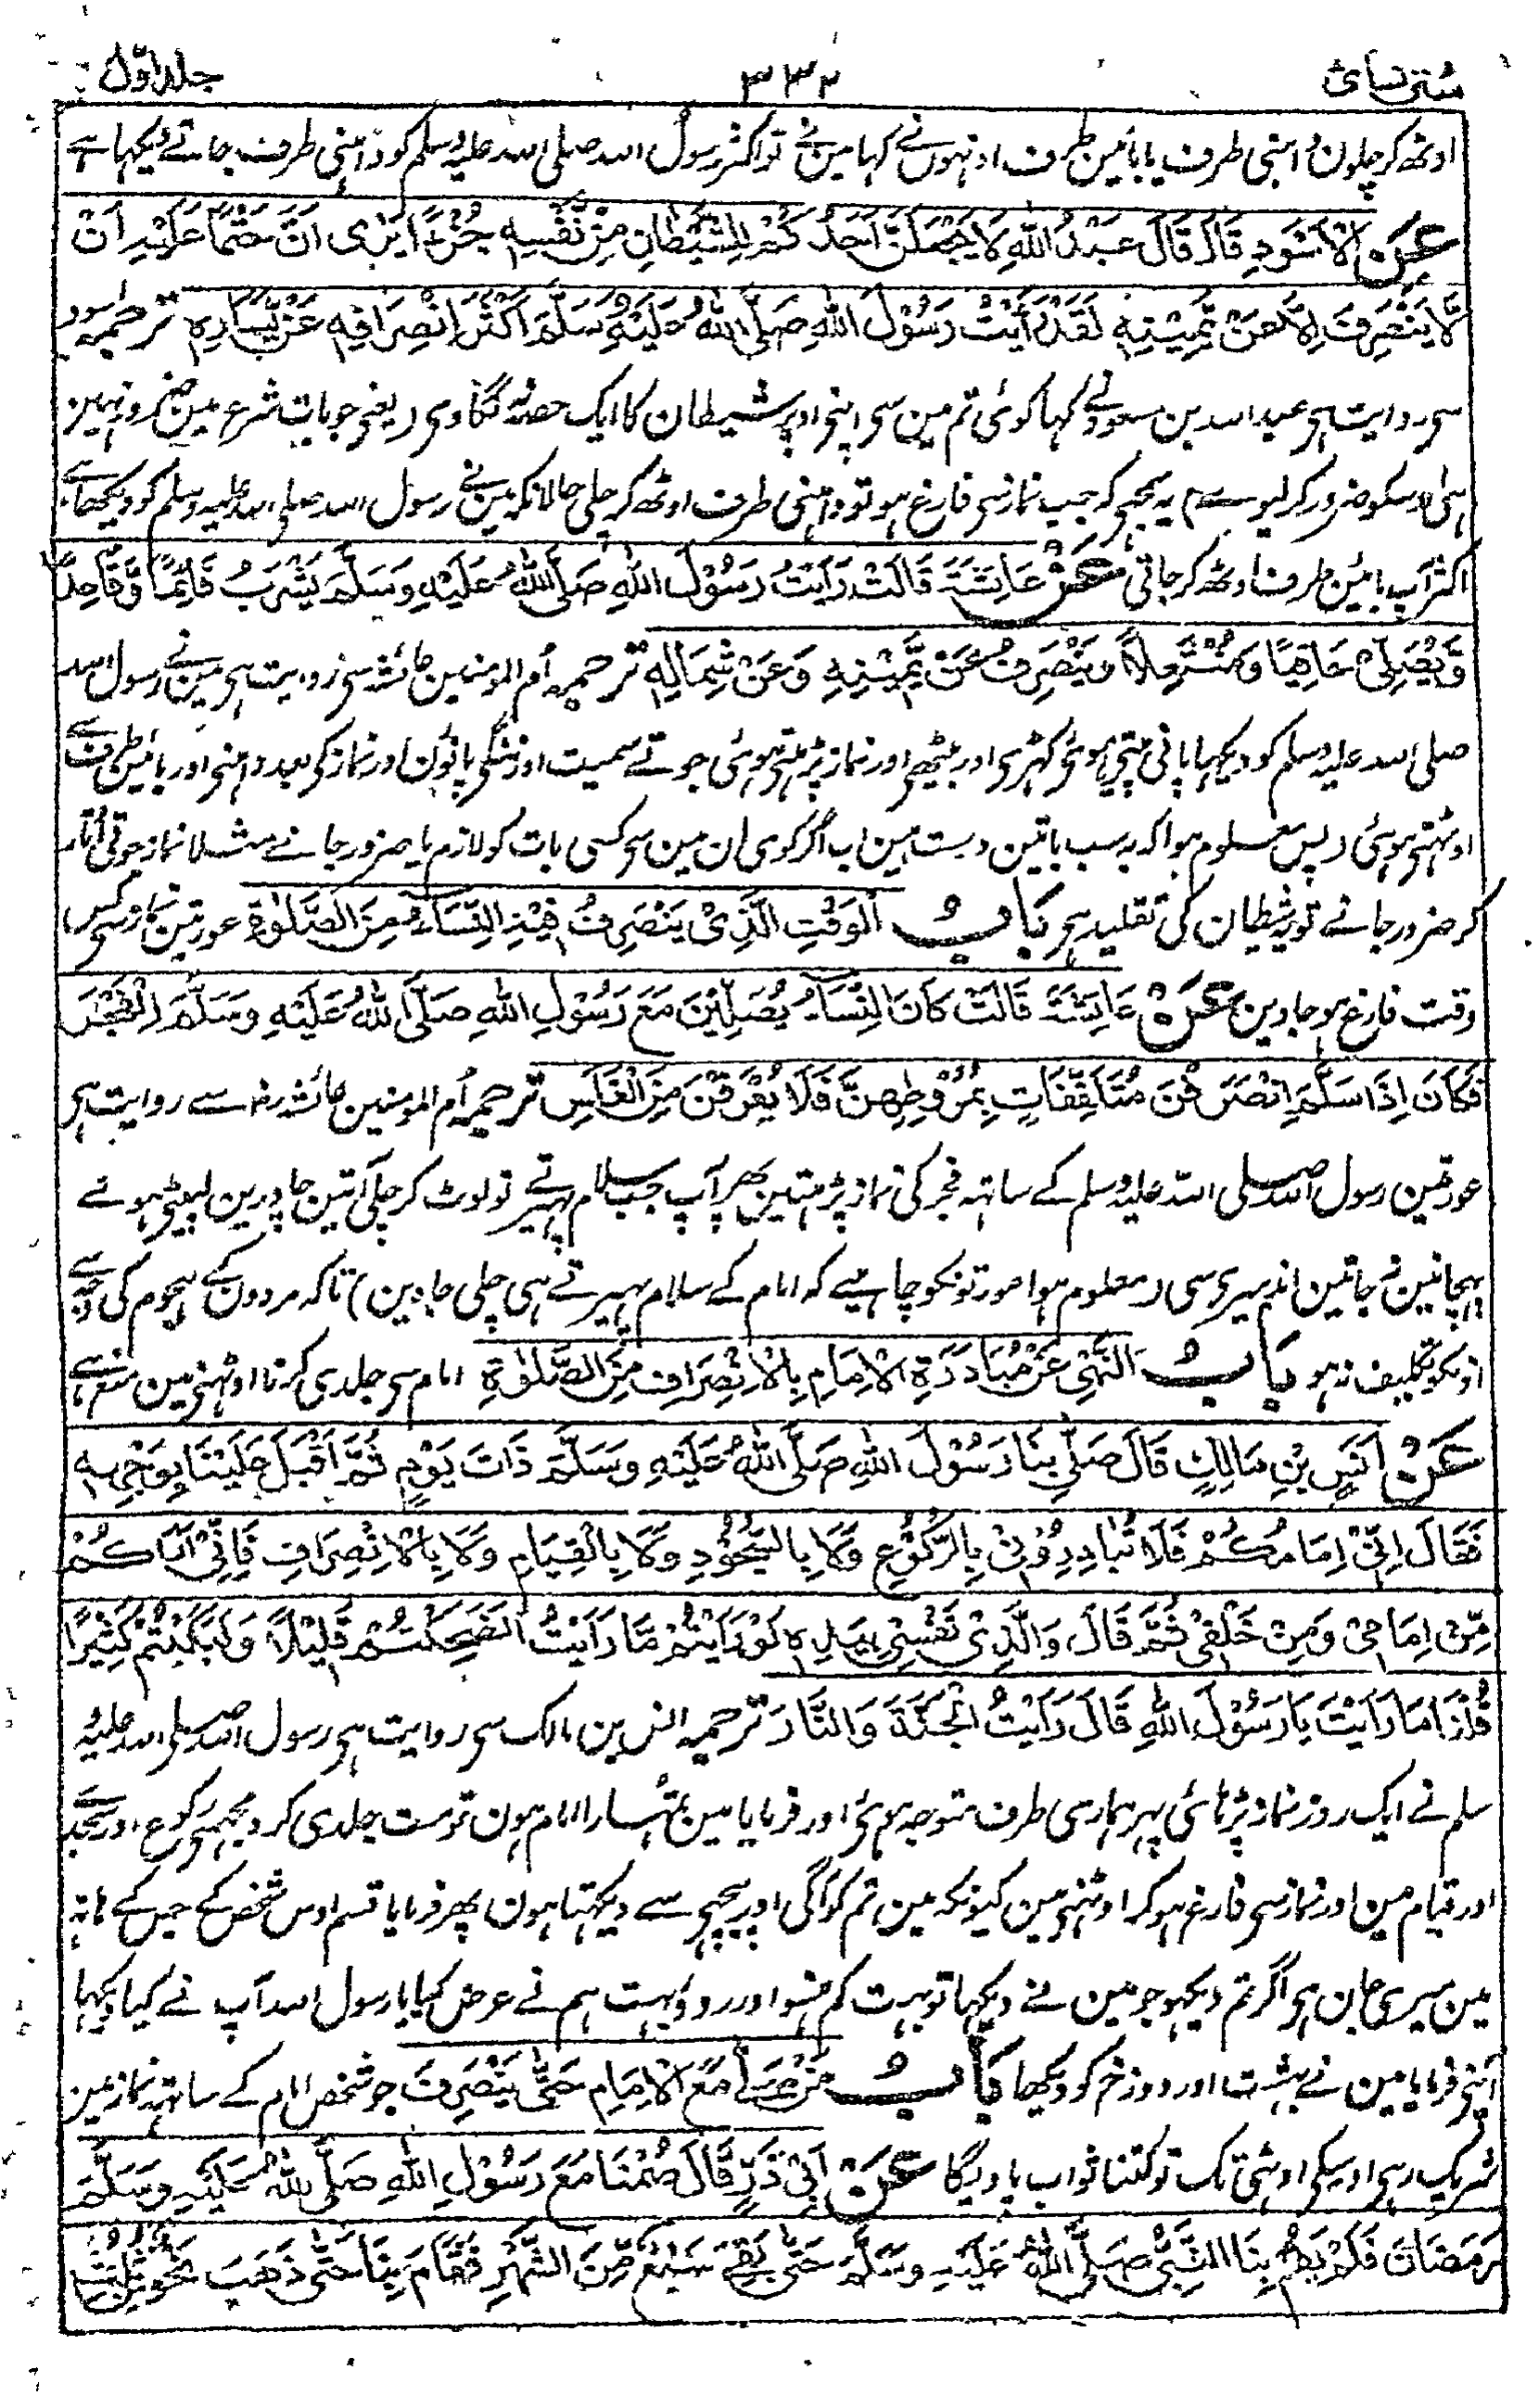 سُنن نسائی ۳۳۲ جلد اوّل
اوٹھ کر چلون داہنی طرف یا بائین طرف اونہون نے کہا مین نے تو اکثر رسول اللہ صلی اللہ علیہ وسلم کو داہنی طرف جاتے دیکہا ہے
عَنِ الْاَسْوَدِ قَالَ قَالَ عَبْدُ اللّٰهِ لَا يَجْعَلَنَّ اَحَدُكُمْ لِلشَّيْطَانِ مِنْ نَّفْسِهٖ جُزْءًا يَرٰى اَنَّ حَتْمًا عَلَيْهِ اَنْ
لَّا يَنْصَرِفَ اِلَّا عَنْ يَّمِيْنِهٖ لَقَدْ رَاَيْتُ رَسُوْلَ اللّٰهِ صَلَّى اللّٰهُ عَلَيْهِ وَسَلَّمَ اَكْثَرَ اِنْصِرَافِهٖ عَنْ يَّسَارِهٖ ترجمہ اسود
سی روایت ہی عبد اللہ بن مسعود نے کہا کوئی تم مین سی اپنی اوپر شیطان کا ایک حصہ نہ لگاوی (یعنی جو بات شرع مین ضرور نہین
ہی اوسکو ضرور کر لیوے) یہ سمجہی کہ جب نماز سی فارغ ہو تو داہنی طرف اوٹھ کر چلی حالانکہ مین نے رسول اللہ صلی اللہ علیہ وسلم کو دیکھا ہے
اکثر آپ بائین طرف اوٹھ کر جاتی عَنْ عَائِشَةَ قَالَتْ رَاَيْتُ رَسُوْلَ اللّٰهِ صَلَّى اللّٰهُ عَلَيْهِ وَسَلَّمَ يَشْرَبُ قَائِمًا وَّقَاعِدًا
وَّيُصَلِّىْ حَافِيًا وَّمُنْتَعِلًا وَّيَنْصَرِفُ عَنْ يَّمِيْنِهٖ وَعَنْ شِمَالِهٖ ترجمہ اُم المومنین عائشہ سی روایت ہی مین نے رسول اللہ
صلی اللہ علیہ وسلم کو دیکہا پانی پیتی ہوئی کہڑی اور بیٹھی اور نماز پڑہتی ہوئی جوتے سمیت اور ننگی پانوُن اور نماز کی بعد داہنی اور بائین طرف سے
اوٹہتی ہوئی (پس معلوم ہوا کہ یہ سب باتین درست ہین اب اگر کوی ان مین سی کسی بات کو لازم یا ضرور جانے مثلا نماز جوتی اُتار
کر ضرور جانے تو یہ شیطان کی تقلید ہی بَابُ الْوَقْتِ الَّذِىْ يَنْصَرِفُ فِيْهِ النِّسَاءُ مِنَ الصَّلٰوةِ عورتین نماز سی کس
وقت فارغ ہو جاوین عَنْ عَائِشَةَ قَالَتْ كَانَ النِّسَاءُ يُصَلِّيْنَ مَعَ رَسُوْلِ اللّٰهِ صَلَّى اللّٰهُ عَلَيْهِ وَسَلَّمَ الْفَجْرَ
فَكَانَ اِذَا سَلَّمَ اِنْصَرَفْنَ مُتَلَفِّفَاتٍ بِمُرُوْطِهِنَّ فَلَا يُعْرَفْنَ مِنَ الْغَلَسِ ترجمہ اُم المومنین عائشہ رض سے روایت ہی
عورتین رسول اللہ صلی اللہ علیہ وسلم کے ساتہہ فجر کی نماز پڑہتین پھر آپ جب سلام پہیرتے تو لوٹ کر چلی آتین چادرین لپیٹی ہوئے
پہچانین نہ جاتین اندہیری سی (معلوم ہوا عورتونکو چاہیے کہ امام کے سلام پہیرتے ہی چلی جاوین) تاکہ مردون کے ہجوم کی وجہ سے
اونکو تکلیف نہ ہو بَابُ النَّهْىِ عَنْ مُّبَادَرَةِ الْاِمَامِ بِالْاِنْصِرَافِ مِنَ الصَّلٰوةِ امام سی جلدی کرنا اوٹہنی مین منع ہے
عَنْ اَنَسِ بْنِ مَالِكٍ قَالَ صَلّٰى بِنَا رَسُوْلُ اللّٰهِ صَلَّى اللّٰهُ عَلَيْهِ وَسَلَّمَ ذَاتَ يَوْمٍ ثُمَّ اَقْبَلَ عَلَيْنَا بِوَجْهِهٖ
فَقَالَ اِنِّىْ اِمَامُكُمْ فَلَا تُبَادِرُوْنِىْ بِالرُّكُوْعِ وَلَا بِالسُّجُوْدِ وَلَا بِالْقِيَامِ وَلَا بِالْاِنْصِرَافِ فَاِنِّىْ اَرَاكُمْ
مِّنْ اَمَامِىْ وَمِنْ خَلْفِىْ ثُمَّ قَالَ وَالَّذِىْ نَفْسِىْ بِيَدِهٖ لَوْ رَاَيْتُمْ مَّا رَاَيْتُ لَضَحِكْتُمْ قَلِيْلًا وَلَبَكَيْتُمْ كَثِيْرًا
قُلْنَا مَا رَاَيْتَ يَا رَسُوْلَ اللّٰهِ قَالَ رَاَيْتُ الْجَنَّةَ وَالنَّارَ ترجمہ انس بن مالک سی روایت ہی رسول اللہ صلی اللہ علیہ
سلم نے ایک روز نماز پڑہائی پہر ہماری طرف متوجہ ہوئی اور فرمایا مین تمہارا امام ہون تو مت جلدی کرو مجہسے رکوع اور سجدے
اور قیام مین اور نماز سی فارغ ہو کر اوٹہنی مین کیونکہ مین تم کو آگی اور پیچہی سے دیکہتا ہون پھر فرمایا قسم اوس شخص کے جس کے ہاتہہ
مین میری جان ہی اگر تم دیکہو جو مین نے دیکہا تو بہت کم ہنسو اور روؤ بہت ہم نے عرض کیا یا رسول اللہ آپ نے کیا دیکہا
آپنی فرمایا مین نے بہشت اور دوزخ کو دیکھا بَابُ مَنْ صَلّٰى مَعَ الْاِمَامِ حَتّٰى يَنْصَرِفَ جو شخص امام کے ساتہہ نماز مین
شریک رہی اوسکی اوٹہتی تک تو کتنا ثواب پاویگا عَنْ اَبِىْ ذَرٍّ قَالَ صُمْنَا مَعَ رَسُوْلِ اللّٰهِ صَلَّى اللّٰهُ عَلَيْهِ وَسَلَّمَ
رَمَضَانَ فَلَمْ يَقُمْ بِنَا النَّبِىُّ صَلَّى اللّٰهُ عَلَيْهِ وَسَلَّمَ حَتّٰى بَقِىَ سَبْعٌ مِّنَ الشَّهْرِ فَقَامَ بِنَا حَتّٰى ذَهَبَ نَحْوٌ مِّنْ ثُلُثِ